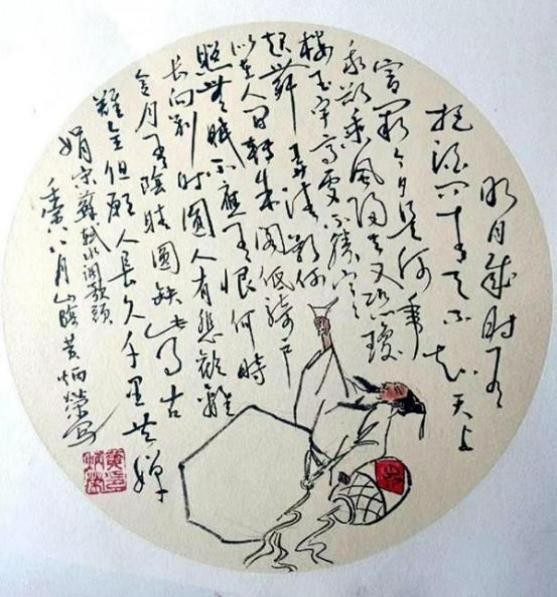 明月幾时有
把酒问青天不知天上
宫阙今夕是何年
我欲乘风归去又恐瓊
楼玉宇高處不勝寒
起舞弄清影何
似在人间轉朱阁低绮户
照无眠不應有恨何時
长向别时圆人有悲歡離
合月有陰晴圆缺此事古
難全但願人長久千里共嬋
娟 宋蘇軾水调歌頭
八月山陰黄炳榮写